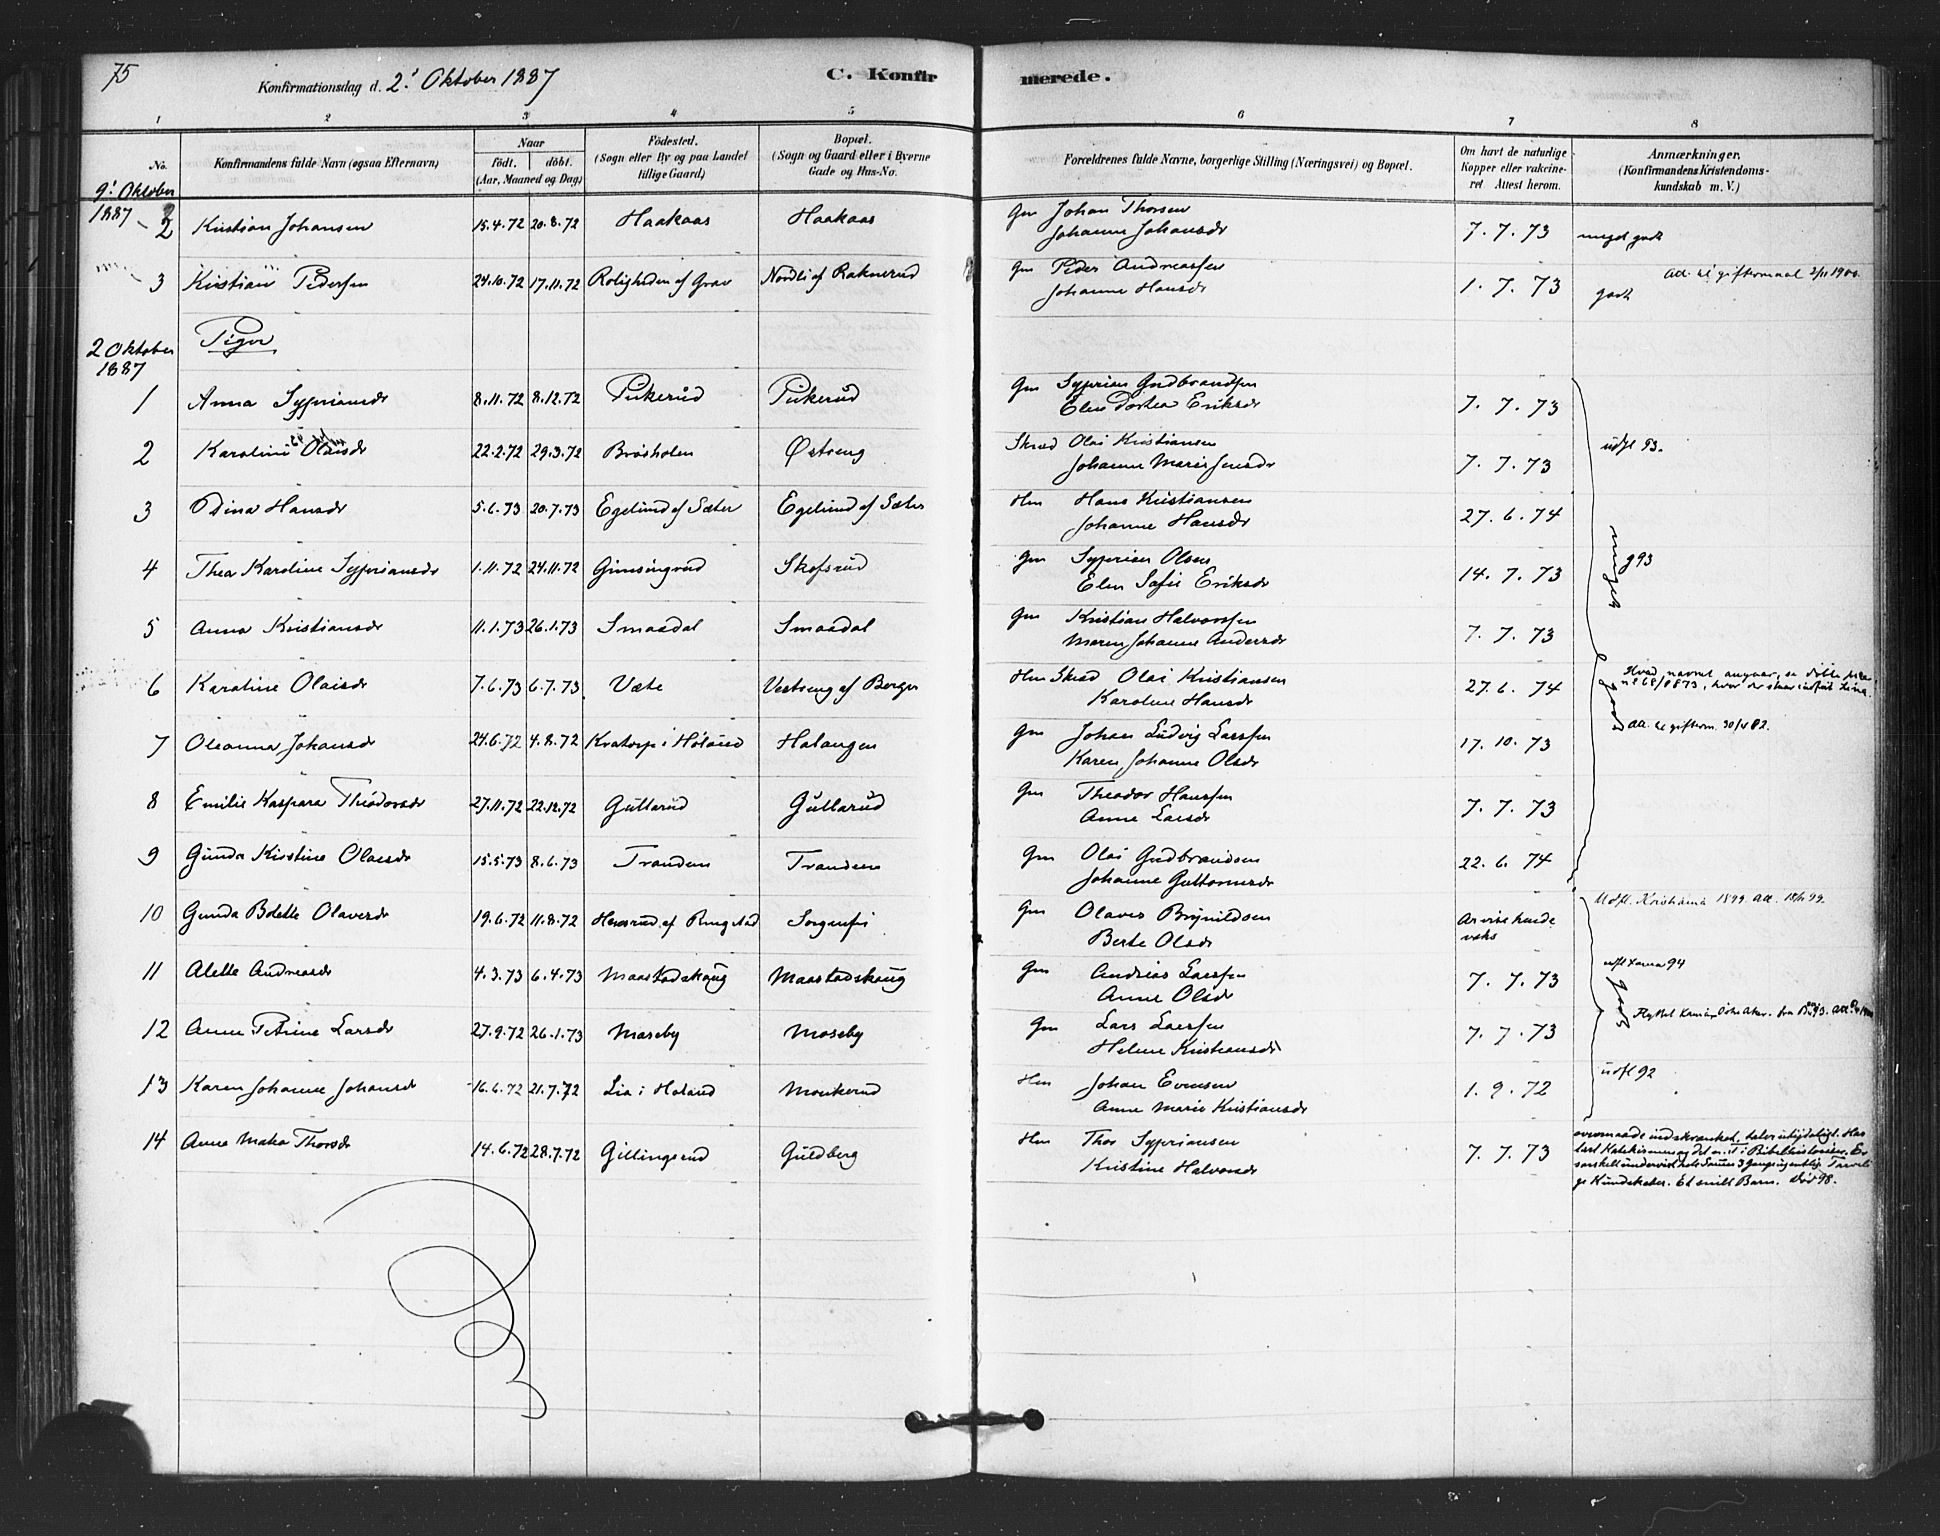 75
Konfirmationsdag d. 2! Oktober 1887
C. Konfir
merede.
1 2 3 4 5 6 7 8
No.
Konfirmandens fulde Navn (ogsaa Efternavn)
Naar
födt. döbt.
(Aar, Maaned og Dag)
Födested.
(Sogn eller By og paa Landet
tillige Gaard)
Bopæl.
(Sogn og Gaard eller i Byerne
Gade og Hus-No.
Forældrenes fulde Navne, borgerlige Stilling (Næringsvei) og Bopæl.
Om havt de naturlige
Kopper eller vakcine-
ret. Attest herom.
Anmærkninger.
(Konfirmandens Kristendoms-
kundskab m. V.)
9! Oktober
1887
2 Kristian Johansen 15.4.72 20.8.72 Haakaas Haakaas Gm Johan Thorsen 7. 7. 73 meget godt
Johanne Johansdr
3 Kristian Pedersen 24.10.72 17.11.72 Roligheden af Grav Nordli af Raknerud Gm Peder Andreassen 1. 7. 73 godt
Johanne Hansdr
Att. til giftermaal 2/11 1900.
2 Oktober
1887
Piger
1 Anna Syprian​sdr 8.11.72 8.12.72 Pukerud Pukerud Gm Syprian Gudbrandsen 7. 7. 73
Elen Dortea Eriksdr
2 Karoline Olaisdr 22.2.72 29.3.72 Bråsholen Østreng Skræd Olai Kristiansen 7. 7. 73 udfl 93.
Johanne Marie Jensdr
3 Odina Hansdr 5.6.73 20.7.73 Egelund af Sæter Egelund af Sæter Hm Hans Kristiansen 27. 6. 74
Johanne Hansdr
meget
4 Thea Karoline Sypriansdr 1.11.72 24.11.72 Gimsingrud Skofsrud Gm Syprian Olsen 14. 7. 73 93
Elen Sofie Eriksdr
5 Anna Kristiansdr 11.1.73 26.1.73 Smaadal Smaadal Gm Kristian Halvorsen 7. 7. 73
Maren Johanne Andersdr
6 Karoline Olaisdr 7.6.73 6.7.73 Væte Vestreng af Berger Hm Skræd Olai Kristiansen 27. 6. 74
Karoline Hansdr
Hvad navnet angaar, se
godt
7 Oleanna Johansdr 24.6.72 4.8.72 Kratorp i Höland Halangen Gm Johan Ludvig Larssen 17. 10. 73
Karen Johanne Olsdr
8 Emilie Kaspara Theodorsdr 27.11.72 22.12.72 Gullarud Gullarud Gm Theodor Hanssen 7. 7. 73
Anne Larsdr
9 Gunda Kristine Olaisdr 15.5.73 8.6.73 Tranden Tranden Gm Olai Gudbrandsen 22. 6. 74
Johanne Guttormsdr
10 Gunda Bolette Olavesdr 19.6.72 11.8.72 af Ringstad Sorgenfri Gm Olaves Brynildsen
Berte Olsdr
Udfl. Kristiania 1899.
11 Alette Andreasdr 4.3.73 6.4.73 Maastadskaug Maastadskaug Gm Andreas Larssen 7. 7. 73 94
Anne Olsdr
godt
12 Anne Petrine Larsdr 27.9.72 26.1.73 Moseby Moseby Gm Lars Larssen 7. 7. 73
Helene Kristiansdr
13 Karen Johanne Johansdr 16.6.72 21.7.72 Lia i Höland Monkerud Hm Johan Evensen 1. 9. 72 udfl 92
Anne Marie Kristiansdr
14 Anne Maka Thorsdr 14.6.72 28.7.72 Gillingsrud Guldberg Hm Thor Sypriansen 7. 7. 73
Kristine Halvorsdr
overmaade indskrænket, taler utydeligt. Har
læst Katekismen og det n. T. i Bibelhistorien. Er
særskelt undervist hele Somer 3 Gange ugentlig.
ge Kundskaber. Et snilt Barn. död 98.